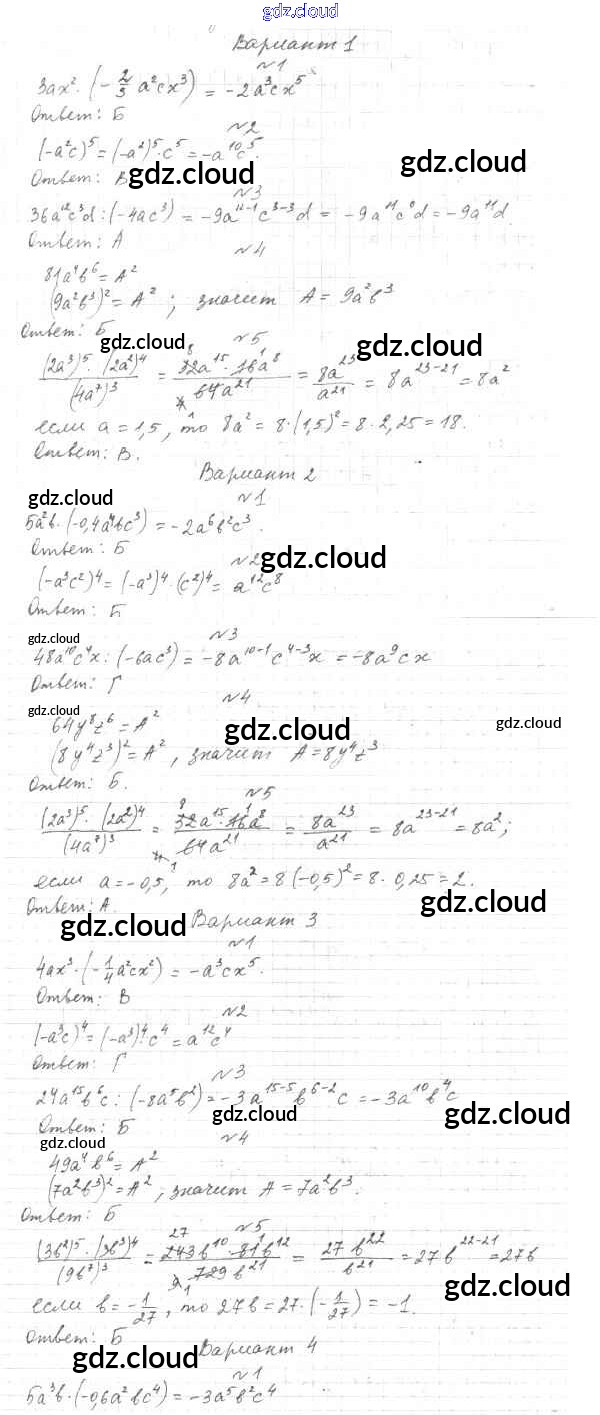 gdz.cloud
Вариант 1
№1
3ax²·(-2/3 a²cx³) = -2a³cx⁵
Ответ: Б
№2
(-a²c)⁵=(-a²)⁵·c⁵=-a¹⁰c⁵.
gdz.cloud
Ответ: В
gdz.cloud
№3
36a¹²c³d:(-4ac³) = -9a¹²⁻¹c³⁻³d = -9a¹¹c⁰d=-9a¹¹d.
Ответ: А
№4
81a⁴b⁶=A²
(9a²b³)²=A²; значит A=9a²b³
Ответ: Б
gdz.cloud
№5
gdz.cloud
(2a³)⁵·(2a²)⁴/(4a⁷)³ = 32a¹⁵·16a⁸/64a²¹ = 8a²³/a²¹ = 8a²³⁻²¹=8a²
если a=1,5, то 8a²=8·(1,5)²=8·2,25=18.
Ответ: В.
Вариант 2
gdz.cloud
№1
5a²b·(-0,4a⁴bc³)=-2a⁶b²c³.
Ответ: Б
№2
gdz.cloud
(-a³c²)⁴=(-a³)⁴·(c²)⁴= a¹²c⁸
Ответ: Б
gdz.cloud
№3
48a¹⁰c⁴x:(-6ac³)=-8a¹⁰⁻¹c⁴⁻³x=-8a⁹cx
Ответ: Г
№4
gdz.cloud
64y⁸z⁶=A²
gdz.cloud
gdz.cloud
(8y⁴z³)²=A², значит A=8y⁴z³
Ответ: Б.
№5
(2a³)⁵·(2a²)⁴/(4a⁷)³ = 32a¹⁵·16a⁸/64a²¹ = 8a²³/a²¹ = 8a²³⁻²¹=8a²;
если a=-0,5, то 8a²=8(-0,5)²=8·0,25=2.
gdz.cloud
Ответ: А.
gdz.cloud
Вариант 3
№1
4ax³·(-1/4a²cx²)=-a³cx⁵.
Ответ: В
№2
(-a³c)⁴=(-a³)⁴·c⁴=a¹²c⁴
Ответ: Г
№3
24a¹⁵b⁶c:(-8a⁵b²)=-3a¹⁵⁻⁵b⁶⁻²c=-3a¹⁰b⁴c
gdz.cloud
gdz.cloud
Ответ: Б
№4
gdz.cloud
49a⁴b⁶=A²
(7a²b³)²=A²; значит A=7a²b³.
Ответ: Б
№5
(3b²)⁵·(3b³)⁴/(9b⁷)³ = 243b¹⁰·81b¹²/729b²¹ = 27b²²/b²¹ = 27b²²⁻²¹=27b
gdz.cloud
если b=-1/27, то 27b=27·(-1/27)=-1.
Ответ: Б
Вариант 4
gdz.cloud
№1
5a³b·(-0,6a²bc⁴)=-3a⁵b²c⁴